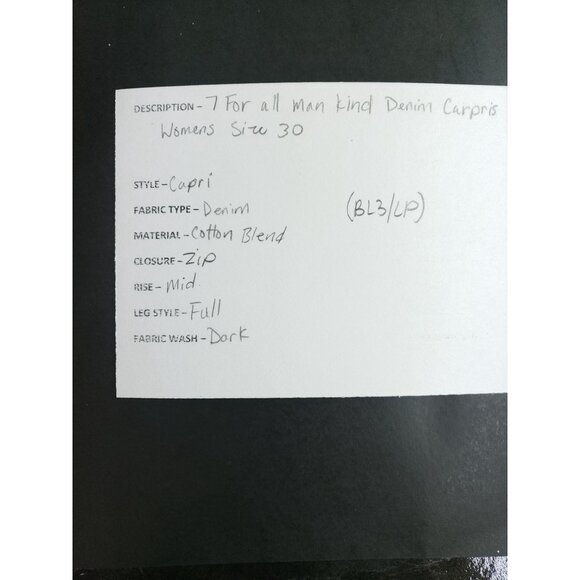 DESCRIPTION - 7 For all man kind Denim Carpris
Womens Size 30
STYLE - Capri
FABRIC TYPE - Denim
(BL3/LP)
MATERIAL - Cotton Blend
CLOSURE - Zip
RISE - Mid
LEG STYLE - Full
FABRIC WASH - Dark